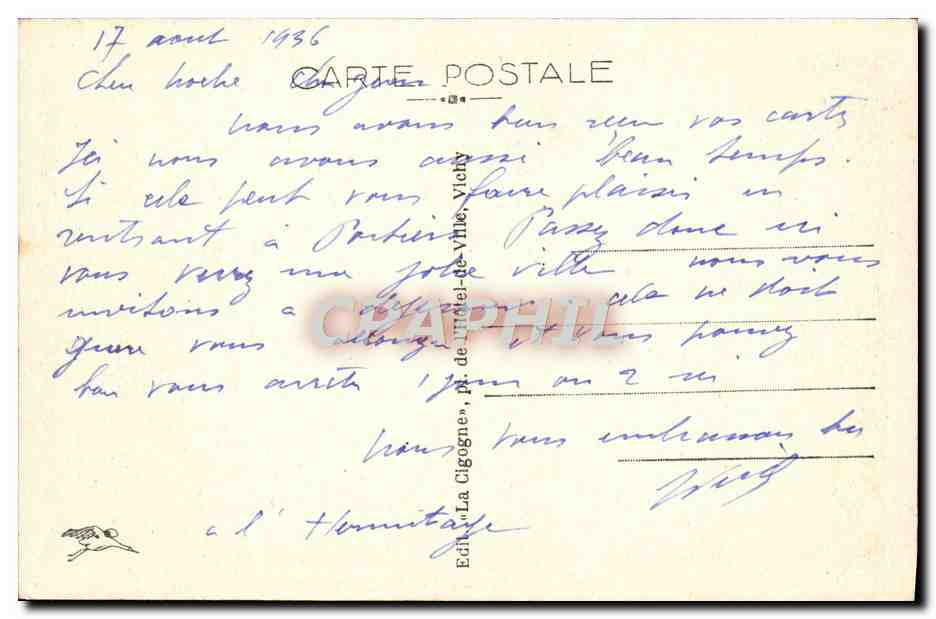 17 aout 1936
CARTE POSTALE
nous avons bien reçu vos cartes
Ici nous avons aussi beau temps.
Si cela peut vous faire plaisir en
rentrant à Passez donc ici
vous verrez une jolie ville nous vous
invitons a déjeuner cela ne doit
guere vous allonger et vous pouvez
bien vous arreter 1 jour ou 2 ici
nous vous embrassons bien
a l'Hermitage
Edit. "La Cigogne", pl. de l'Hôtel-de-Ville, Vichy
CPAPHIL